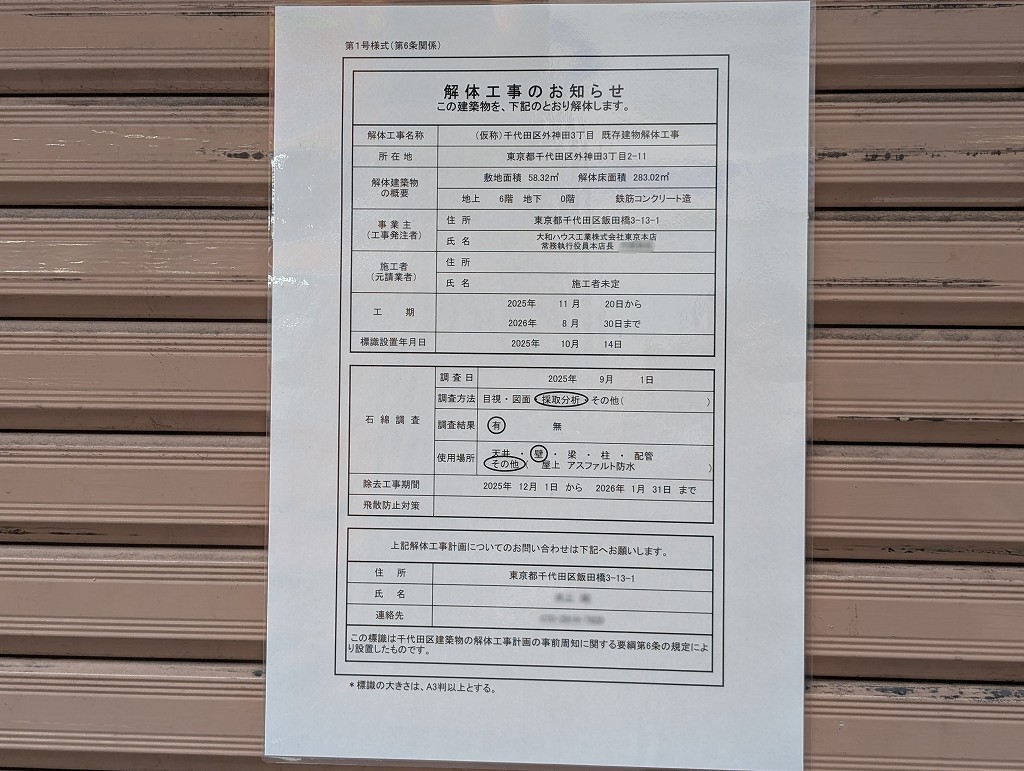 第1号様式(第6条関係)
解体工事のお知らせ
この建築物を、下記のとおり解体します。
解体工事名称 (仮称)千代田区外神田3丁目 既存建物解体工事
所在地 東京都千代田区外神田3丁目2-11
解体建築物の概要 敷地面積 58.32㎡ 解体床面積 283.02㎡
地上 6階 地下 0階 鉄筋コンクリート造
事業主(工事発注者) 住所 東京都千代田区飯田橋3-13-1
氏名 大和ハウス工業株式会社東京本店
常務執行役員本店長
施工者(元請業者) 住所
氏名 施工者未定
工期 2025年 11月 20日から
2026年 8月 30日まで
標識設置年月日 2025年 10月 14日
石綿調査 調査日 2025年 9月 1日
調査方法 目視・図面・採取分析・その他( )
調査結果 有 無
使用場所 天井・壁・梁・柱・配管
その他( 屋上 アスファルト防水 )
除去工事期間 2025年 12月 1日 から 2026年 1月 31日 まで
飛散防止対策
上記解体工事計画についてのお問い合わせは下記へお願いします。
住所 東京都千代田区飯田橋3-13-1
氏名
連絡先
この標識は千代田区建築物の解体工事計画の事前周知に関する要綱第6条の規定によ
り設置したものです。
*標識の大きさは、A3判以上とする。